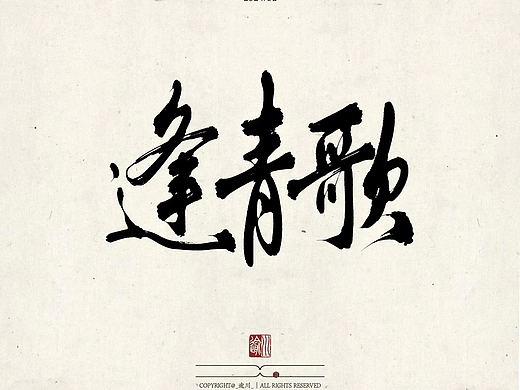 逢青歌
COPYRIGHT@_炎川_ | ALL RIGHTS RESERVED